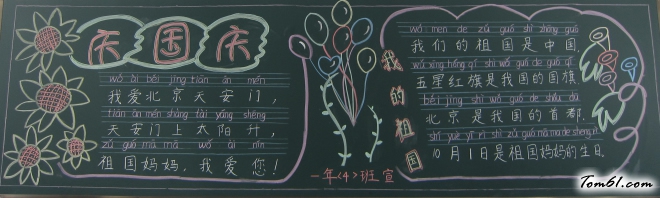 庆国庆
wǒ ài běi jīng tiān ān mén
我爱北京天安门，
tiān ān mén shàng tài yáng shēng
天安门上太阳升，
zǔ guó mā mā wǒ ài nín
祖国妈妈，我爱您！
我的祖国
wǒ men de zǔ guó shì zhōng guó
我们的祖国是中国.
wǔ xīng hóng qí shì wǒ guó de guó qí
五星红旗是我国的国旗
běi jīng shì wǒ guó de shǒu dū
北京是我国的首都.
shí yuè yī rì shì zǔ guó mā ma de shēng rì
10月1日是祖国妈妈的生日.
一年〈4〉班宣
Tom61.com